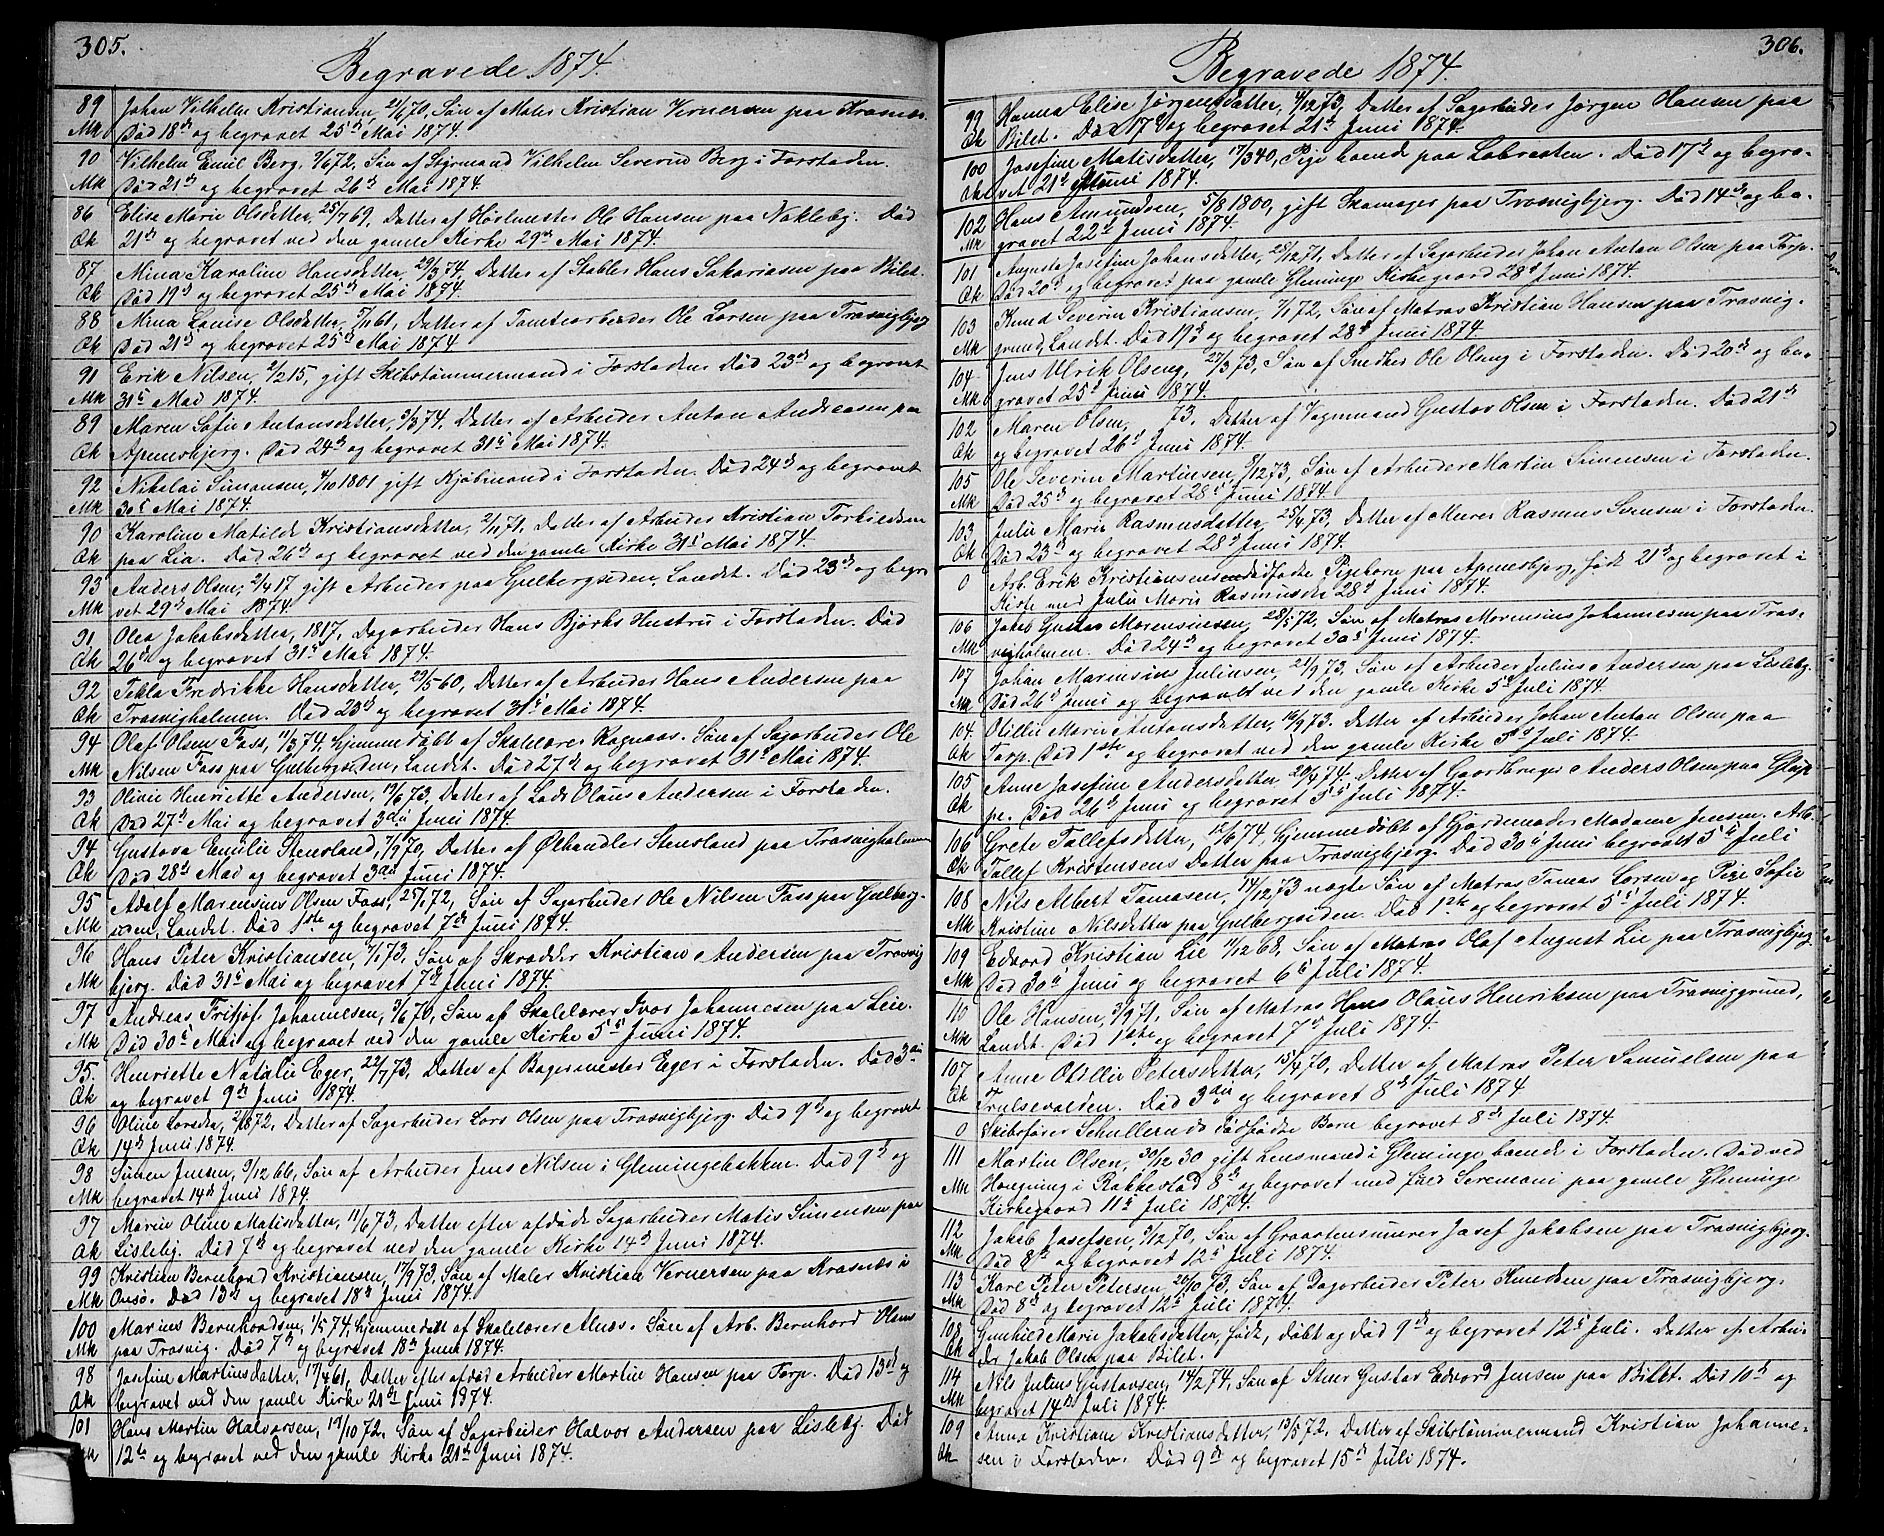 305.
Begravede 1874.
89 Johan Vilhelm Kristiansen, 21/6 70, Søn af Maler Kristian Vernersen paa Kraanæs.
Mk Død 18de og begravet 25de Mai 1874.
90 Vilhelm Emil Berg, 9/6 72, Søn af Styrmand Vilhelm Severin Berg i Forstaden.
Mk Død 21de og begravet 26de Mai 1874.
86 Elise Marie Olsdatter, 25/7 69, Datter af Ole Hansen paa Nøkleby. Død
Qk 21de og begravet ved den gamle Kirke 29de Mai 1874.
87 Mina Karoline Hansdatter, 29/3 74, Datter af Stabler Hans Sakariasen paa Bilet.
Qk Død 19de og begravet 25de Mai 1874.
88 Mina Louise Olsdatter, 7/11 61, Datter af Tomtearbeider Ole Larsen paa Trosvigbjerg
Qk Død 21de og begravet 25de Mai 1874
91 Erik Nilsen, 2/2 15, gift Skibstømmermand i Forstaden Død 23de og begravet
Mk 31te Mai 1874.
89 Maren Sofie Antonsdatter, 9/3 74, Datter af Arbeider Anton Andreasen paa
Qk Apenesbjerg. Død 24de og begravet 31te Mai 1874.
92 Nikolai Simonsen, 4/10 1801 gift Kjøbmand i Forstaden. Død 24de og begravet
Mk 30te Mai 1874.
90 Karoline Matilde Kristiansdatter, 2/1 71, Datter af Arbeider Kristian Torkildsen
Qk paa Lia. Død 26de og begravet ved den gamle Kirke 31te Mai 1874.
93 Anders Olsen, 2/4 17 gift Arbeider paa Gulbergsiden, Landet. Død 23de og begra-
Mk vet 29de Mai 1874.
91 Olea Jakobsdatter, 1817, Dagarbeider Hans Bjørks Hustru i Forstaden. Død
Qk 26de og begravet 31te Mai 1874.
92 Tekla Fredrikke Hansdatter, 29/5 60, Datter af Arbeider Hans Andersen paa
Qk Trosvigholmen. Død 23de og begravet 31te Mai 1874.
94 Olaf Olsen Foss, 11/3 74, hjemmedøbt af Skolelærer Ragnaas. Søn af Sagarbeider Ole
Mk Nilsen Foss paa Gulbergsiden, Landet. Død 27de og begravet 31te Mai 1874.
93 Olivie Henriette Andersen, 19/6 73, Datter af Lods Olaus Andersen i Forstaden.
Qk Død 27de Mai og begravet 3die Juni 1874.
94 Gustava Emilie Stensland, 7/9 70, Datter af Ølhandler Stensland paa Trosvigholmen
Qk Død 28de Mai og begravet 3die Juni 1874.
95 Adolf Marensius Olsen Foss, 25/1 72, Søn af Sagarbeider Ole Nilsen Foss paa Gulberg-
Mk siden, Landet. Død 1ste og begravet 7de Juni 1874.
96 Hans Peter Kristiansen, 7/1 73, Søn af Skrædder Kristian Andersen paa Trosvig
Mk bjerg. Død 31te Mai og begravet 7de Juni 1874.
97 Andreas Fritjof Johannesen, 3/6 70, Søn af Skolelærer Ivar Johannesen paa Leie.
Mk Død 30te Mai og begravet ved den gamle Kirke 5te Juni 1874.
95. Henriette Natalie Eger, 22/7 73, Datter af Bagermester Eger i Forstaden. Død 3die
Qk og begravet 9de Juni 1874.
96 Oline Larsdtr, 2/8 72, Datter af Sagarbeider Lars Olsen paa Trosvigbjerg. Død 9de og begravet
Qk 14de Juni 1874.
98 Simen Jensen, 9/12 66, Søn af Arbeider Jens Nilsen i Glemmingebakken. Død 9de og
Mk begravet 14de Juni 1874.
97 Maren Oline Matisdatter, 11/6 73, Datter efter afdøde Sagarbeider Matis Simensen paa
Qk Lisleby. Død 7de og begravet ved den gamle Kirke 14de Juni 1874.
99 Kristian Bernhard Kristiansen, 17/9 73, Søn af Maler Kristian Vernersen paa Kraanæs i
Mk Onsø. Død 13de og begravet 18de Juni 1874.
100 Marius Bernhardsen, 1/5 74, hjemmedøbt af Skolelærer Alnæs. Søn af Arb. Bernhard Olsen
Mk paa Trosvig. Død 7de og begravet 18de Juni 1874.
98 Josefine Martinsdatter, 17/4 61, Datter efter afdød Arbeider Martin Hansen paa Torp. Død 13de og
Qk begravet ved den gamle Kirke 21de Juni 1874.
101 Hans Martin Halvorsen, 17/10 72, Søn af Sagarbeider Halvor Andersen paa Lisleby. Død
Mk 12te og begravet ved den gamle Kirke 21de Juni 1874.
306.
Begravede 1874.
99 Hanna Elise Jørgensdatter, 4/12 73, Datter af Sagarbeider Jørgen Hansen paa
Qk Bilet. Død 17de og begravet 21de Juni 1874.
100 Josefine Matisdatter, 17/3 40, Pige boende paa Labraaten. Død 17de og begra-
Qk vet 21de Juni 1874.
102 Hans Amundsen, 5/8 1800, gift Skomager paa Trosvigbjerg. Død 14de og be-
Mk gravet 22de Juni 1874.
101 Augusta Josefine Johansdatter, 28/12 71, Datter af Sagarbeider Johan Anton Olsen paa Torp.
Qk Død 20de og begravet paa gamle Glemminge Kirkegaard 28de Juni 1874.
103 Knud Severin Kristiansen, 7/1 72, Søn af Matros Kristian Hansen paa Trosvig-
Mk grund, Landet. Død 19de og begravet 28de Juni 1874.
104 Jens Ulrik Olseng, 27/3 73, Søn af Snedker Ole Olseng i Forstaden. Død 20de og be-
Mk gravet 25de Juni 1874.
102 Maren Olsen, 73. Datter af Vognmand Gustav Olsen i Forstaden. Død 21de
Qk og begravet 26de Juni 1874.
105 Ole Severin Martinsen, 8/12 73, Søn af Arbeider Martin Simensen i Forstaden.
Mk Død 25de og begravet 28de Juni 1874.
103 Julie Marie Rasmusdatter, 25/4 73, Datter af Murer Rasmus Svensen i Forstaden.
Qk Død 23de og begravet 28de Juni 1874.
0 Arb. Erik Kristiansens dødfødte Pigebarn paa Apenesbjerg, født 21de og begravet i
Kiste med Julie Marie Rasmusdtr 28de Juni 1874.
106 Jakob Gustav Morensiusen, 28/5 72, Søn af Matros Morensius Johannesen paa Tros-
Mk vigholmen. Død 24de og begravet 30te Juni 1874.
107 Johan Marensius Juliusen, 21/9 73, Søn af Arbeider Julius Andersen paa Lisleby.
Mk Død 26de Juni og begravet ved den gamle Kirke 5te Juli 1874.
104. Otillie Marie Antonsdatter, 16/9 73. Datter af Arbeider Johan Anton Olsen paa
Qk Torp. Død 1ste og begravet ved den gamle Kirke 5te Juli 1874.
105 Anne Josefine Andersdatter, 20/4 74. Datter af Gaardbruger Anders Olsen paa Glup-
Qk pe. Død 26de Juni og begravet 5te Juli 1874.
106 Grete Tollefsdatter, 12/6 74, hjemmedøbt af Gjordemoder Madame Jensen. Arb.
Qk Tollef Kristensens Datter paa Trosvigbjerg. Død 30te Juni begravet 5te Juli
108 Nils Albert Tomasen, 14/12 73 uægte Søn af Matros Tomas Larsen og Pige Sofie
Mk Kristine Nilsdatter paa Gulbergsiden. Død 1ste og begravet 5te Juli 1874.
109 Edvard Kristian Lie 11/12 68, Søn af Matros Olaf August Lie paa Trosvigbjerg
Mk Død 30te Juni og begravet 6te Juli 1874.
110 Ole Hansen, 3/9 71, Søn af Matros Hans Olaus Henriksen paa Trosviggrund,
Mk Landet. Død 1ste og begravet 7de Juli 1874.
107 Anne Otillie Petersdatter, 15/4 70, Datter af Matros Peter Samuelsen paa
Qk Trulsevolden. Død 3die og begravet 8de Juli 1874
0 Skibsfører Schullerud dødfødte Barn begravet 8de Juli 1874.
111 Martin Olsen, 30/12 30 gift Lensmand i Glemminge boende i Forstaden. Død ved
Mk Hængning i Rakkestad 8de og begravet med fuld Seremoni paa gamle Glemminge
Kirkegaard 11te Juli 1874.
112 Jakob Josefsen, 5/12 70, Søn af Graastensmurer Josef Jakobsen paa Trosvigbjerg.
Mk Død 8de og begravet 12te Juli 1874.
113 Karl Peter Petersen, 26/10 73, Søn af Dagarbeider Peter Knudsen paa Trosvigbjerg.
Mk Død 8de og begravet 12te Juli 1874.
108 Gunhild Marie Jakobsdatter, født, døbt og død 9de og begravet 12te Juli. Datter af Arbei-
Qk der Jakob Olsen paa Bilet.
114 Nils Julius Gustavsen, 14/2 74, Søn af Stuer Gustav Edvard Jensen paa Bilet. Død 10de og
Mk begravet 14de Juli 1874.
109 Anna Kristiane Kristiansdatter, 13/5 72, Datter af Skibstømmermand Kristian Johanne-
Qk sen i Forstaden. Død 9de og begravet 15de Juli 1874.